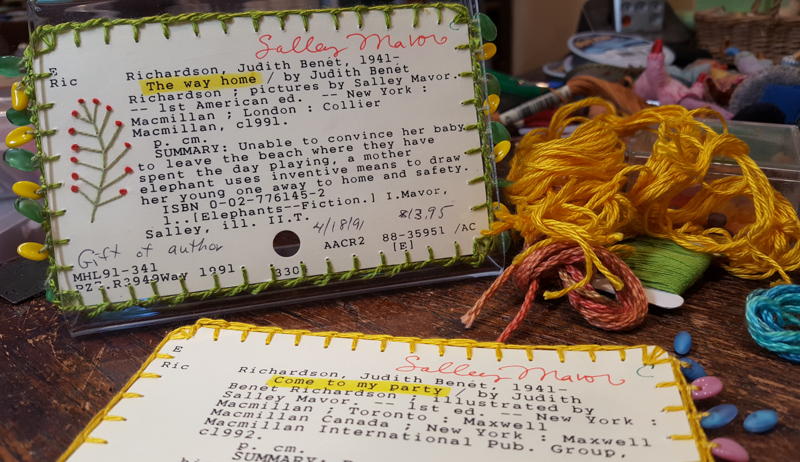 Salley Mavor
Richardson, Judith Benét, 1941-
E
Ric
The way home / by Judith Benét
Richardson ; pictures by Salley Mavor.
-- 1st American ed. -- New York :
Macmillan ; London : Collier
Macmillan, c1991.
p. cm.
SUMMARY: Unable to convince her baby
to leave the beach where they have
spent the day playing, a mother
elephant uses inventive means to draw
her young one away to home and safety.
ISBN 0-02-776145-2
1. [Elephants--Fiction.] I.Mavor,
Salley, ill. II.T.
Gift of author
4/18/91
$13.95
AACR2
88-35951 /AC
[E]
MHL91-341
PZ7.R3949Way 1991
330
C
Salley Mavor
C
E
Ric
Richardson, Judith Benét, 1941-
Come to my party / by Judith
Benét Richardson ; illustrated by
Salley Mavor. -- 1st ed. -- New York :
Macmillan ; Toronto : Maxwell
Macmillan Canada ; New York : Maxwell
Macmillan International Pub. Group,
c1992.
p. cm.
SUMMARY: